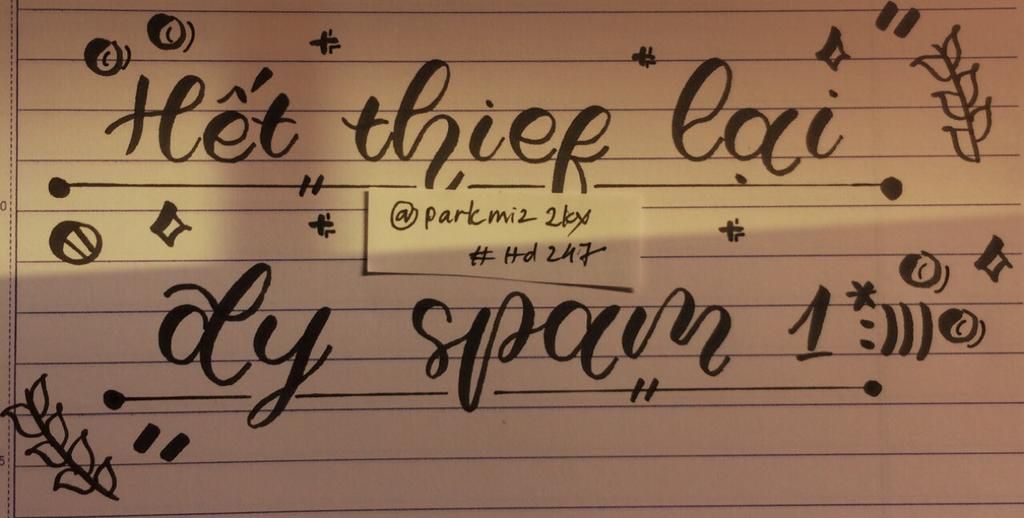 Hết thief lại
@parkmiz 2kx
# Hd 247
dy spam 1*:)))